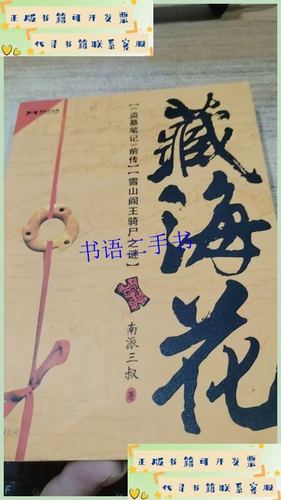 正版书籍可开发票
代寻书籍联系客服
藏海花
【《盗墓笔记》前传】【雪山阎王骑尸之谜】
南派三叔 著
书语二手书
正版书籍可开发票
代寻书籍联系客服